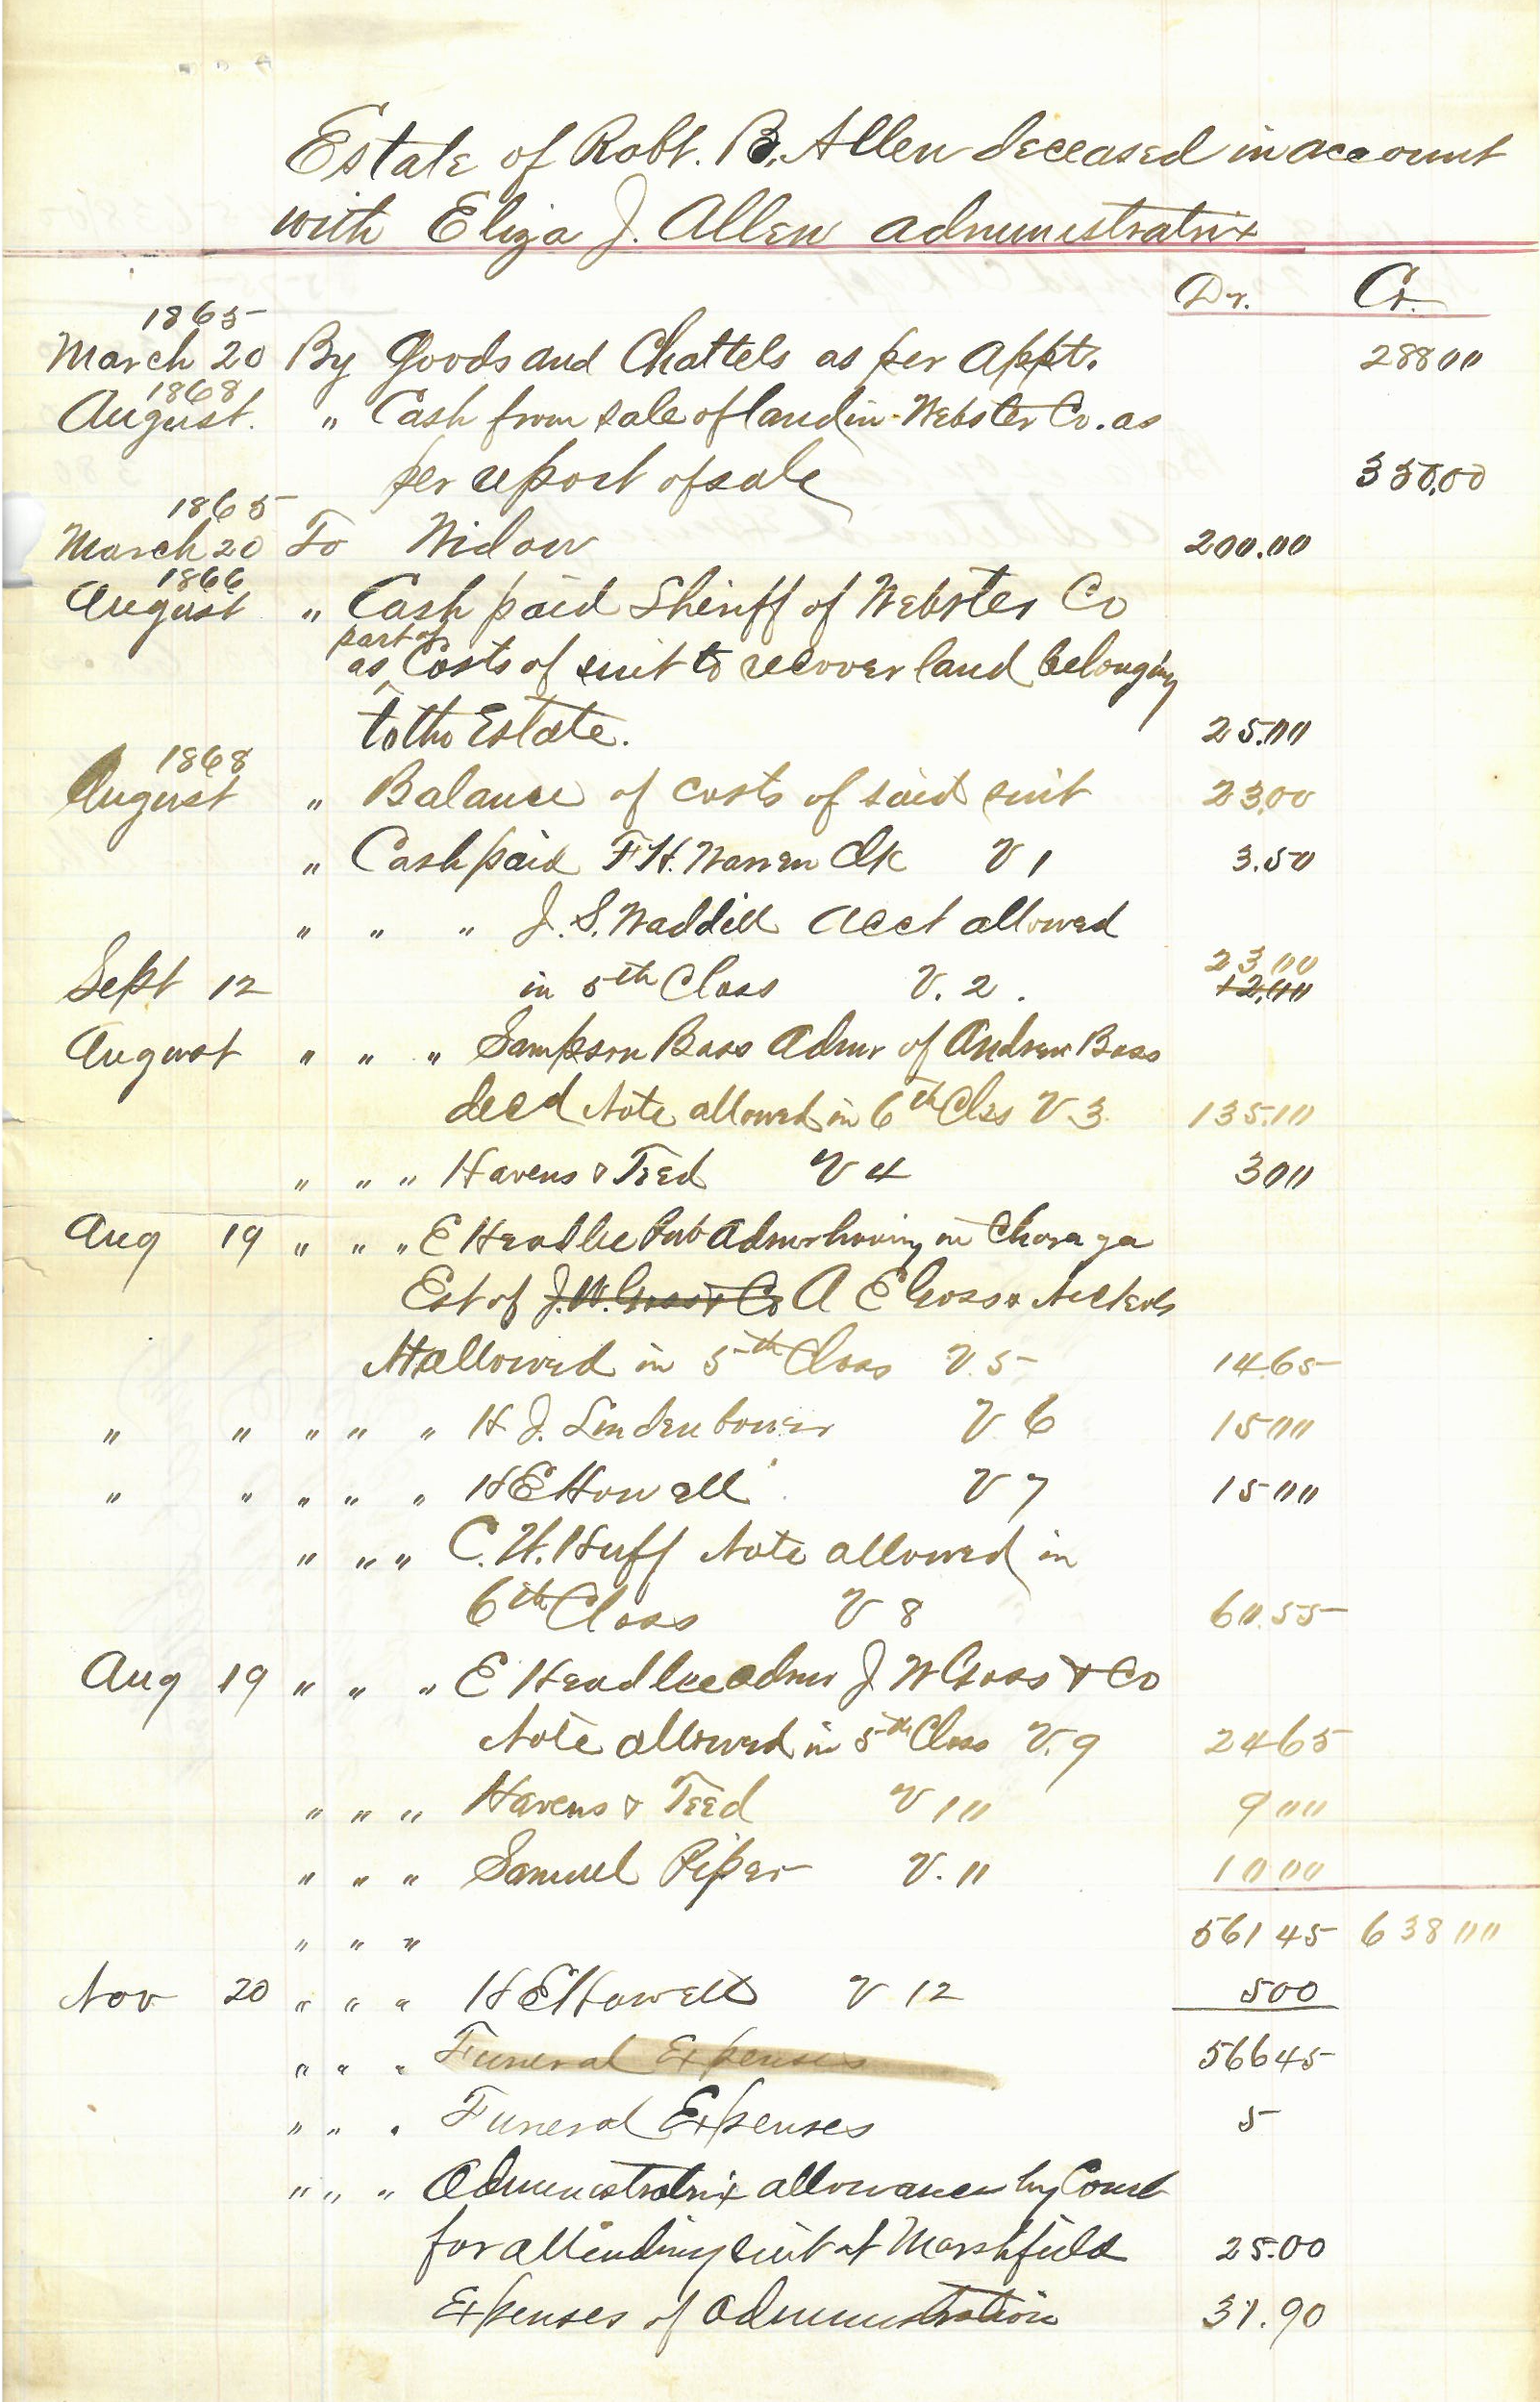 Estate of Robt. B. Allen deceased in account
with Eliza J. Allen administratrix
Dr. Cr.
1865
March 20 By Goods and Chattels as per Appt. 288 00
1868
August. " Cash from sale of land in Webster Co. as
per report of sale 350.00
1865
March 20 To Widow 200.00
1866
August " Cash paid Sheriff of Webster Co
part of
as Costs of suit to recover land belonging
to the Estate. 25.00
1868
August " Balance of costs of said suit 23.00
" Cash paid F H. Warren Clk V 1 3.50
" " " J. S. Waddill Acct allowed
23 00
Sept 12 in 5th Class V. 2. 12.00
August " " " Sampson Bass Admr of Andrew Bass
decd Note allowed in 6th Class V 3. 135.10
" " " Havens & Teed V 4 3 00
Aug 19 " " " E Headlee Pub Admr having in Charge
Est of J. W. Goss & Co A E Goss &
allowed in 5th Class V. 5 14.65
" " " " " H J. Lindenbower V 6 15 00
" " " " " H E Howell V 7 15 00
" " " C. H. Huff Note allowed in
6th Class V 8 60.55
Aug 19 " " " E Headlee admr J W Goss & Co
Note allowed in 5th Class V. 9 24 65
" " " Havens & Teed V 10 9 00
" " " Samuel Piper V. 11 10 00
" " " 561 45 638 00
Nov 20 " " " H E Howell V 12 5 00
" " " Funeral Expenses 566 45
" " " Funeral Expenses 5
" " " Administratrix allowance by Court
for attending suit at Marshfield 25.00
Expenses of Administration 31.90